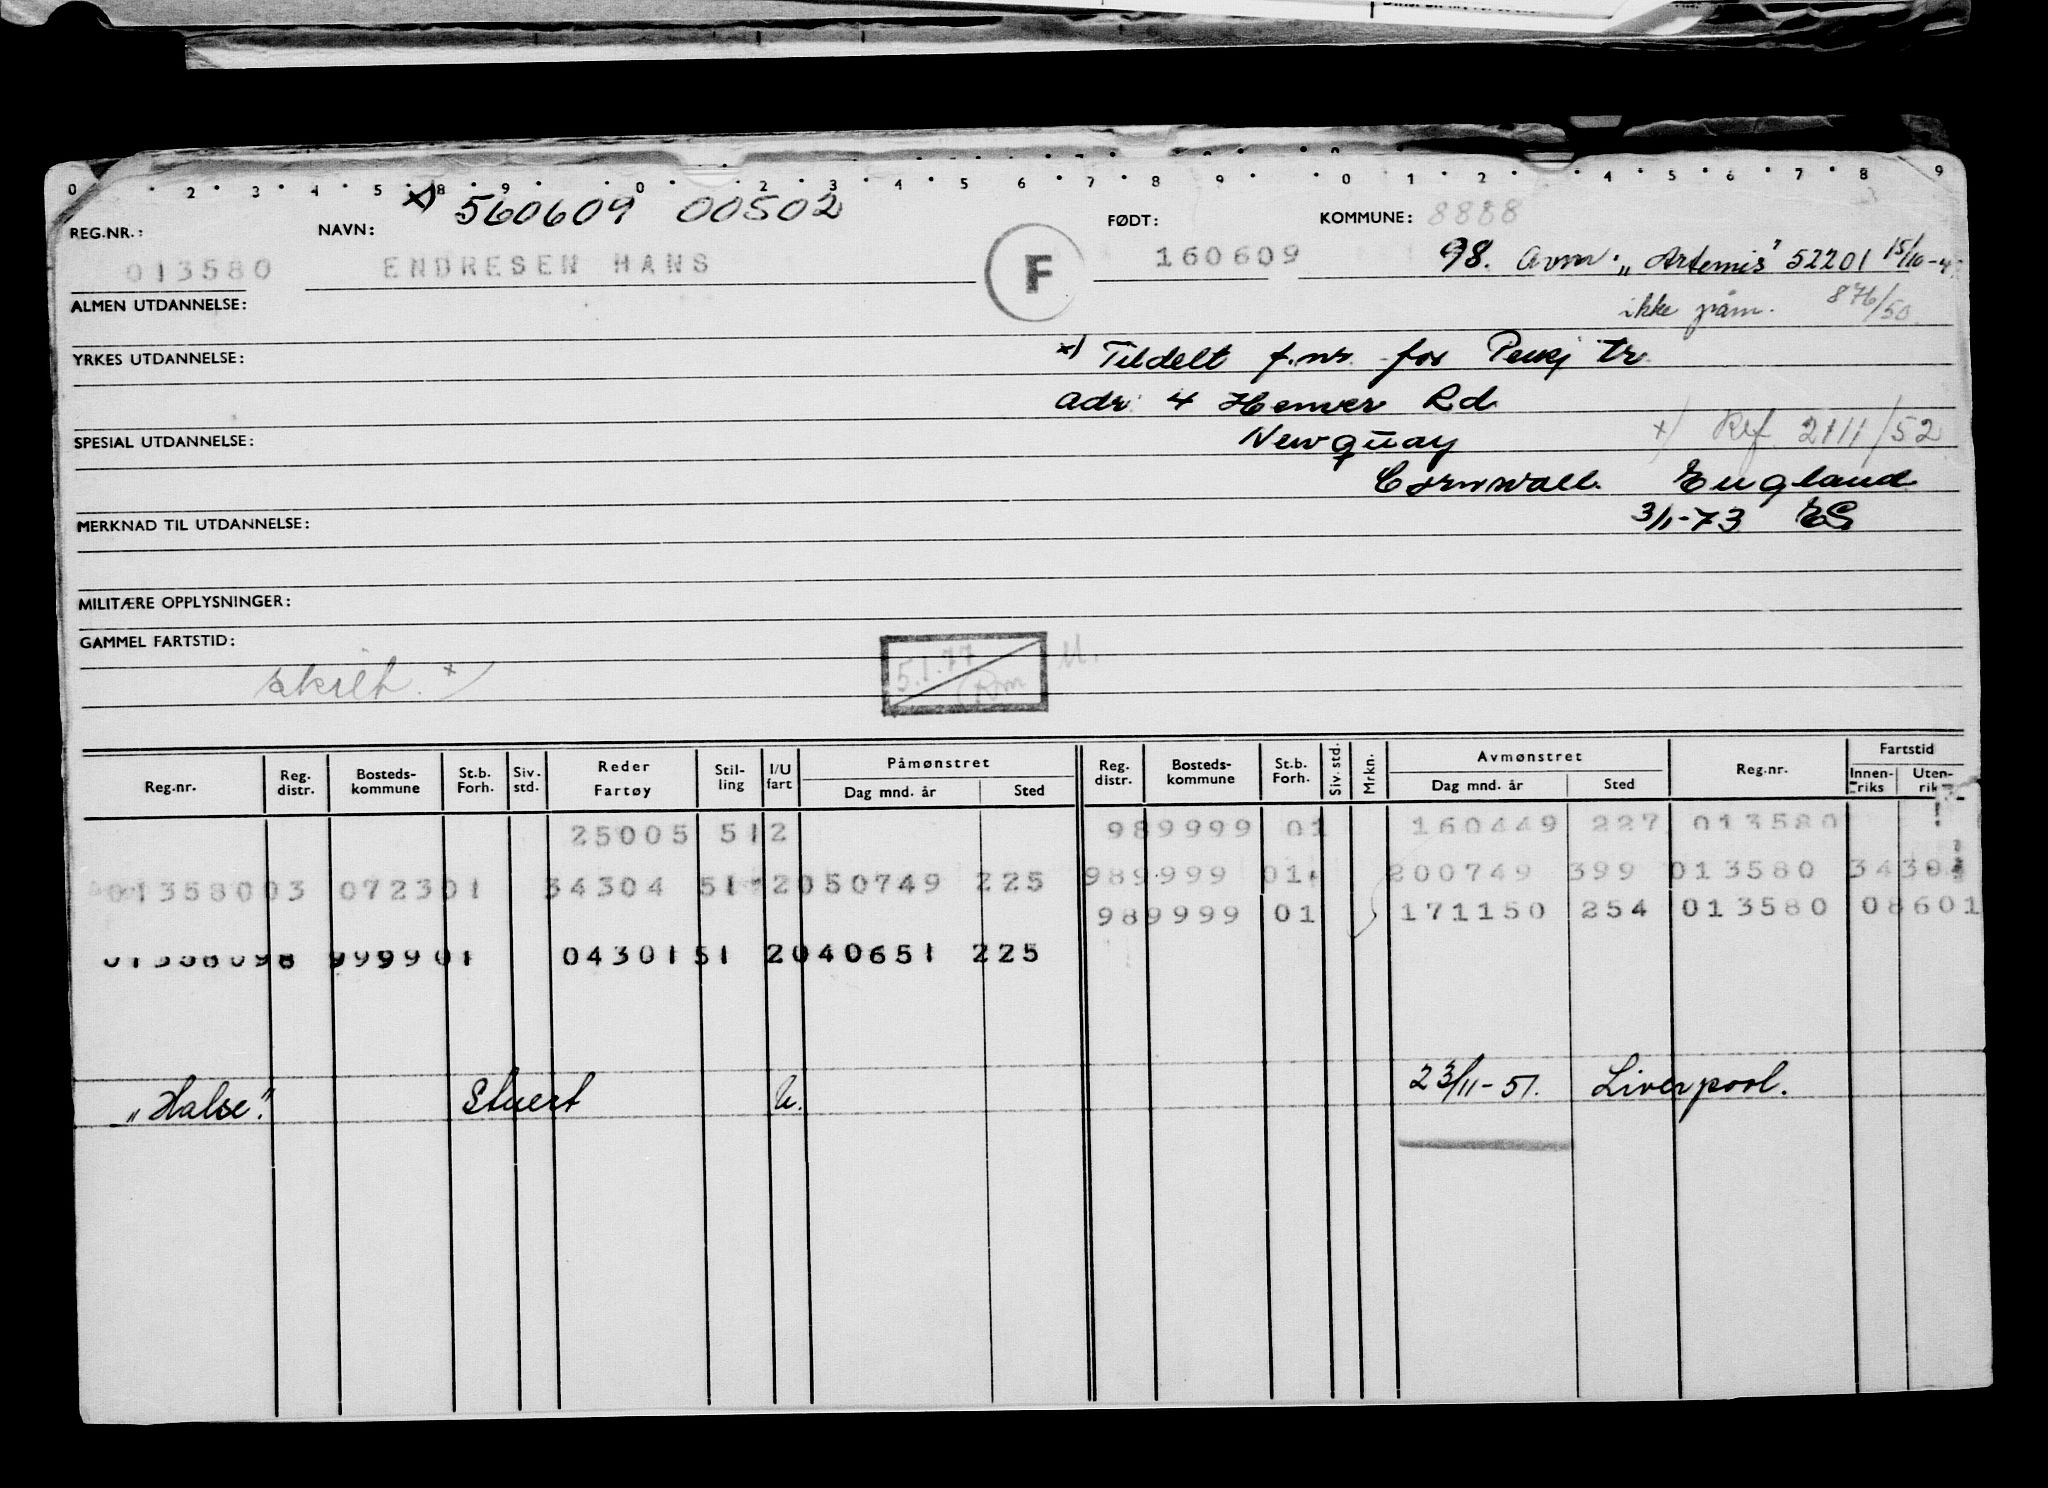 0 2 3 4 5 8 9 0 2 3 4 5 6 7 8 9 0 1 2 4 5 6 7 8 9
x) 560609 00502
REG.NR.: NAVN: FØDT: KOMMUNE: 8888
013580 ENDRESEN HANS F 160609 98. Avm. „Artemis" 52201 15/10-4
ALMEN UTDANNELSE: ikke påm. 876/50
YRKES UTDANNELSE: x) Tildelt f.nr. for Pensj tr
adr 4 Henver Rd
SPESIAL UTDANNELSE: Newquay x) Ref 2111/52
Cornwall. England
MERKNAD TIL UTDANNELSE: 3/1-73 ES
MILITÆRE OPPLYSNINGER:
GAMMEL FARTSTID:
skilt. x) 5.1.77
Reg.nr. Reg. distr. Bosteds- kommune St.b. Forh. Siv. std. Reder Fartøy Stil- ling I/U fart Påmønstret Dag mnd. år Sted Reg. distr. Bosteds- kommune St.b. Forh. Siv. std. Mrkn. Avmønstret Dag mnd. år Sted Reg.nr. Fartstid Innen- riks Uten- riks
25005 512 989999 01 160449 227 013580
01358003 072301 34304 51 2050749 225 989999 01 200749 399 013580 34304
989999 01 171150 254 013580 08601
01358098 999901 0430151 2040651 225
„Halse". Stuert U. 23/11-51. Liverpool.